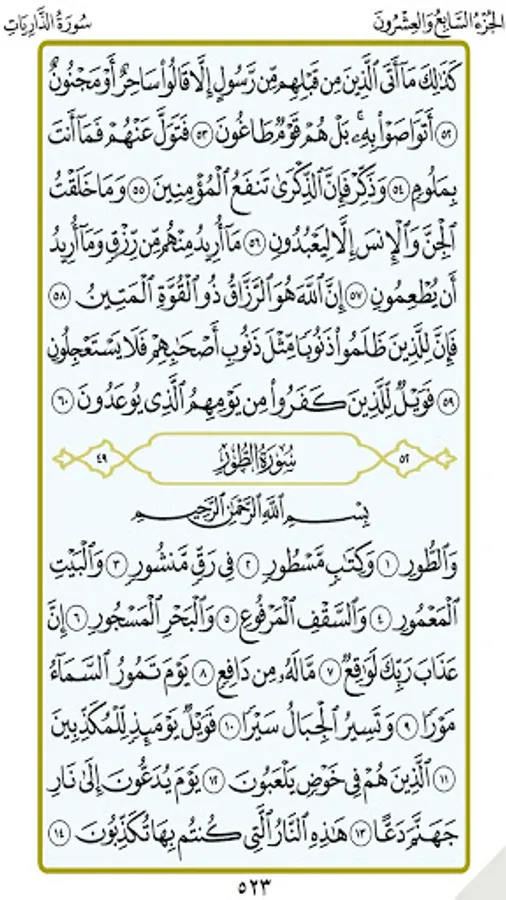 الجُزْءُ السَّابِعُ وَالعِشْرُونَ
سُورَةُ الذَّارِيَاتِ
كَذَٰلِكَ مَآ أَتَى ٱلَّذِينَ مِن قَبْلِهِم مِّن رَّسُولٍ إِلَّا قَالُوا۟ سَاحِرٌ أَوْ مَجْنُونٌ
٥٢ أَتَوَاصَوْا۟ بِهِۦ ۚ بَلْ هُمْ قَوْمٌ طَاغُونَ ٥٣ فَتَوَلَّ عَنْهُمْ فَمَآ أَنتَ
بِمَلُومٍ ٥٤ وَذَكِّرْ فَإِنَّ ٱلذِّكْرَىٰ تَنفَعُ ٱلْمُؤْمِنِينَ ٥٥ وَمَا خَلَقْتُ
ٱلْجِنَّ وَٱلْإِنسَ إِلَّا لِيَعْبُدُونِ ٥٦ مَآ أُرِيدُ مِنْهُم مِّن رِّزْقٍ وَمَآ أُرِيدُ
أَن يُطْعِمُونِ ٥٧ إِنَّ ٱللَّهَ هُوَ ٱلرَّزَّاقُ ذُو ٱلْقُوَّةِ ٱلْمَتِينُ ٥٨
فَإِنَّ لِلَّذِينَ ظَلَمُوا۟ ذَنُوبًا مِّثْلَ ذَنُوبِ أَصْحَٰبِهِمْ فَلَا يَسْتَعْجِلُونِ
٥٩ فَوَيْلٌ لِّلَّذِينَ كَفَرُوا۟ مِن يَوْمِهِمُ ٱلَّذِى يُوعَدُونَ ٦٠
٥٢ سُورَةُ الطُّورِ ٤٩
بِسْمِ ٱللَّهِ ٱلرَّحْمَٰنِ ٱلرَّحِيمِ
وَٱلطُّورِ ١ وَكِتَٰبٍ مَّسْطُورٍ ٢ فِى رَقٍّ مَّنشُورٍ ٣ وَٱلْبَيْتِ
ٱلْمَعْمُورِ ٤ وَٱلسَّقْفِ ٱلْمَرْفُوعِ ٥ وَٱلْبَحْرِ ٱلْمَسْجُورِ ٦ إِنَّ
عَذَابَ رَبِّكَ لَوَٰقِعٌ ٧ مَّا لَهُۥ مِن دَافِعٍ ٨ يَوْمَ تَمُورُ ٱلسَّمَآءُ
مَوْرًا ٩ وَتَسِيرُ ٱلْجِبَالُ سَيْرًا ١٠ فَوَيْلٌ يَوْمَئِذٍ لِّلْمُكَذِّبِينَ
١١ ٱلَّذِينَ هُمْ فِى خَوْضٍ يَلْعَبُونَ ١٢ يَوْمَ يُدَعُّونَ إِلَىٰ نَارِ
جَهَنَّمَ دَعًّا ١٣ هَٰذِهِ ٱلنَّارُ ٱلَّتِى كُنتُم بِهَا تُكَذِّبُونَ ١٤
٥٢٣